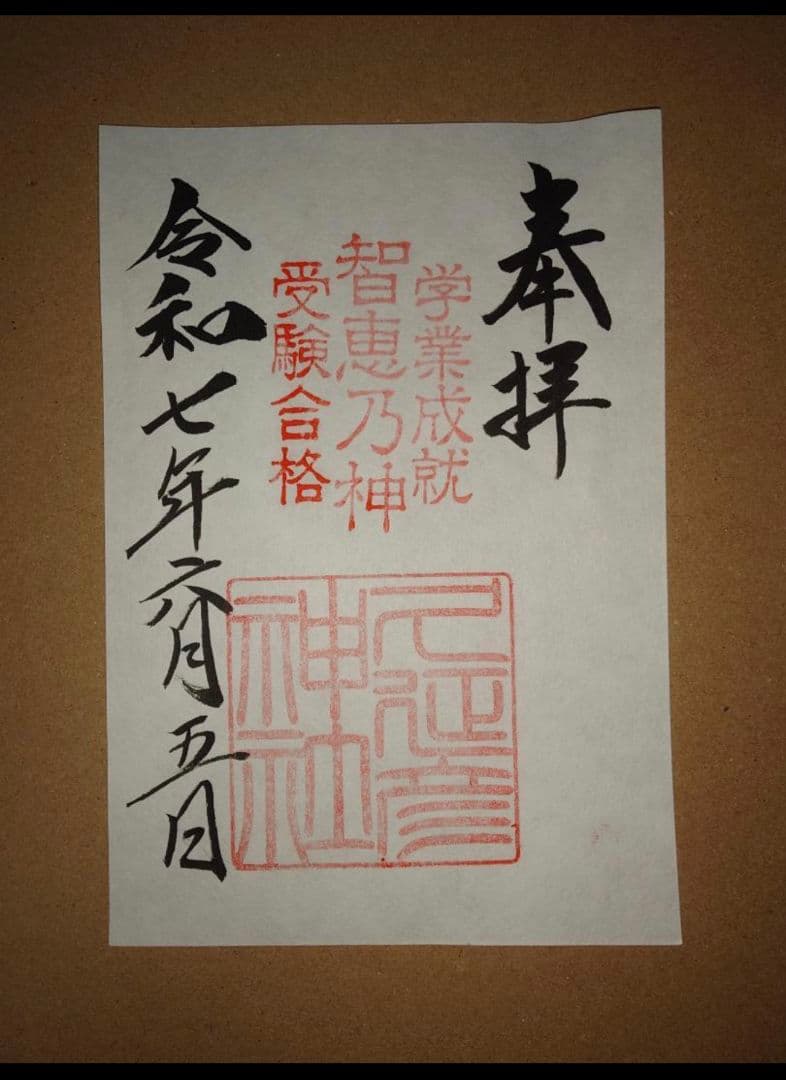 奉拝
学業成就
智恵乃神
受験合格
久延彦
神社
令和七年六月五日